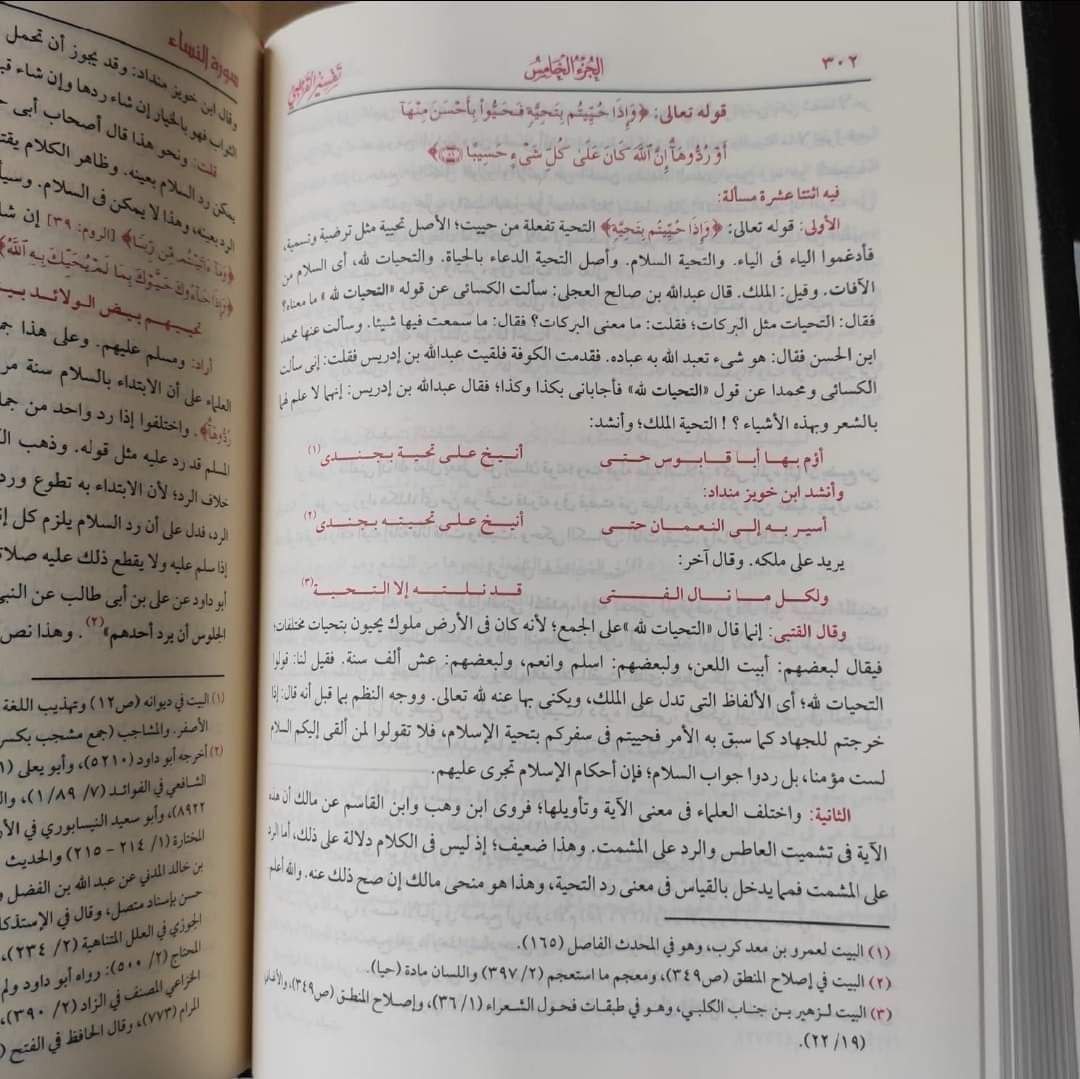 ٣٠٢
الجزء الخامس
تفسير القرطبي
قوله تعالى: ﴿وَإِذَا حُيِّيتُم بِتَحِيَّةٍ فَحَيُّوا۟ بِأَحْسَنَ مِنْهَآ
أَوْ رُدُّوهَآ إِنَّ ٱللَّهَ كَانَ عَلَىٰ كُلِّ شَىْءٍ حَسِيبًا ٨٦﴾
فيه اثنتا عشرة مسألة:
الأولى: قوله تعالى: ﴿وَإِذَا حُيِّيتُم بِتَحِيَّةٍ﴾ التحية تفعلة من حييت؛ الأصل تحيية مثل ترضية وتسمية،
فأدغموا الياء فى الياء. والتحية السلام. وأصل التحية الدعاء بالحياة. والتحيات لله، أى السلام من
الآفات. وقيل: الملك. قال عبدالله بن صالح العجلى: سألت الكسائى عن قوله «التحيات لله» ما معناه؟
فقال: التحيات مثل البركات؛ فقلت: ما معنى البركات؟ فقال: ما سمعت فيها شيئا. وسألت عنها محمد
ابن الحسن فقال: هو شىء تعبد الله به عباده. فقدمت الكوفة فلقيت عبدالله بن إدريس فقلت: إنى سألت
الكسائى ومحمدا عن قول «التحيات لله» فأجابانى بكذا وكذا؛ فقال عبدالله بن إدريس: إنهما لا علم لهما
بالشعر وبهذه الأشياء ؟ ! التحية الملك؛ وأنشد:
أؤم بها أبا قابوس حتى أنيخ على تحية بجندى(١)
وأنشد ابن خويز منداد:
أسير به إلى النعمان حتى أنيخ على تحيته بجندى(٢)
يريد على ملكه. وقال آخر:
ولكل ما نال الفتى قد نلته إلا التحية(٣)
وقال القتبى: إنما قال «التحيات لله» على الجمع؛ لأنه كان فى الأرض ملوك يحيون بتحيات مختلفات؛
فيقال لبعضهم: أبيت اللعن، ولبعضهم: اسلم وانعم، ولبعضهم: عش ألف سنة. فقيل لنا: قولوا
التحيات لله؛ أى الألفاظ التى تدل على الملك، ويكنى بها عنه لله تعالى. ووجه النظم بما قبل أنه قال: إذا
خرجتم للجهاد كما سبق به الأمر فحييتم فى سفركم بتحية الإسلام، فلا تقولوا لمن ألقى إليكم السلام
لست مؤمنا، بل ردوا جواب السلام؛ فإن أحكام الإسلام تجرى عليهم.
الثانية: واختلف العلماء فى معنى الآية وتأويلها؛ فروى ابن وهب وابن القاسم عن مالك أن هذه
الآية فى تشميت العاطس والرد على المشمت. وهذا ضعيف؛ إذ ليس فى الكلام دلالة على ذلك، أما الرد
على المشمت فمما يدخل بالقياس فى معنى رد التحية، وهذا هو منحى مالك إن صح ذلك عنه. والله أعلم
(١) البيت لعمرو بن معد كرب، وهو في المحدث الفاصل (١٦٥).
(٢) البيت في إصلاح المنطق (ص٣٤٩)، ومعجم ما استعجم (٢/ ٣٩٧) واللسان مادة (حيا).
(٣) البيت لزهير بن جناب الكلبي، وهو في طبقات فحول الشعراء (١/ ٣٦)، وإصلاح المنطق (ص٣٤٩)، والأغاني
(١٩/ ٢٢).
سورة النساء
وقال ابن خويز منداد: وقد يجوز أن تحمل
الثواب فهو بالخيار إن شاء ردها وإن شاء
قلت: ونحو هذا قال أصحاب أبى
يمكن رد السلام بعينه. وظاهر الكلام
الرد بعينه، وهذا لا يمكن فى السلام.
﴿وَمَآ ءَاتَيْتُم مِّن رِّبًا﴾ [الروم: ٣٩] إن
﴿وَإِذَا جَآءُوكَ حَيَّوْكَ بِمَا لَمْ يُحَيِّكَ بِهِ ٱللَّهُ﴾
تحييهم بيض الولائد
أراد: ومسلم عليهم. وعلى هذا
العلماء على أن الابتداء بالسلام سنة
رُدُّوهَا﴾. واختلفوا إذا رد واحد من
المسلم قد رد عليه مثل قوله. وذهب
خلاف الرد؛ لأن الابتداء به تطوع
الرد، فدل على أن رد السلام يلزم كل
إذا سلم عليه ولا يقطع ذلك عليه
أبو داود عن على بن أبى طالب عن
الجلوس أن يرد أحدهم»(٢). وهذا نص
(١) البيت في ديوانه (ص١٢) وتهذيب اللغة
الأصفر. والمشاجب (جمع مشجب بكسر
(٢) أخرجه أبو داود (٥٢١٠)، وأبو يعلى
الشافعي في الفوائد (٧/ ٨٩/ ١)،
٨٩٢٢)، وأبو سعيد النيسابوري في
المختارة (١/ ٢١٤ - ٢١٥) والحديث
بن خالد المدني عن عبدالله بن الفضل
حسن بإسناد متصل، وقال في الإستذكار
الجوزي في العلل المتناهية (٢/ ٢٣٤)،
المحتاج (٢/ ٥٠٠): رواه أبو داود ولم
الخزاعي المصنف في الزاد (٢/ ٣٩٠)،
المرام (٧٧٣)، وقال الحافظ في الفتح